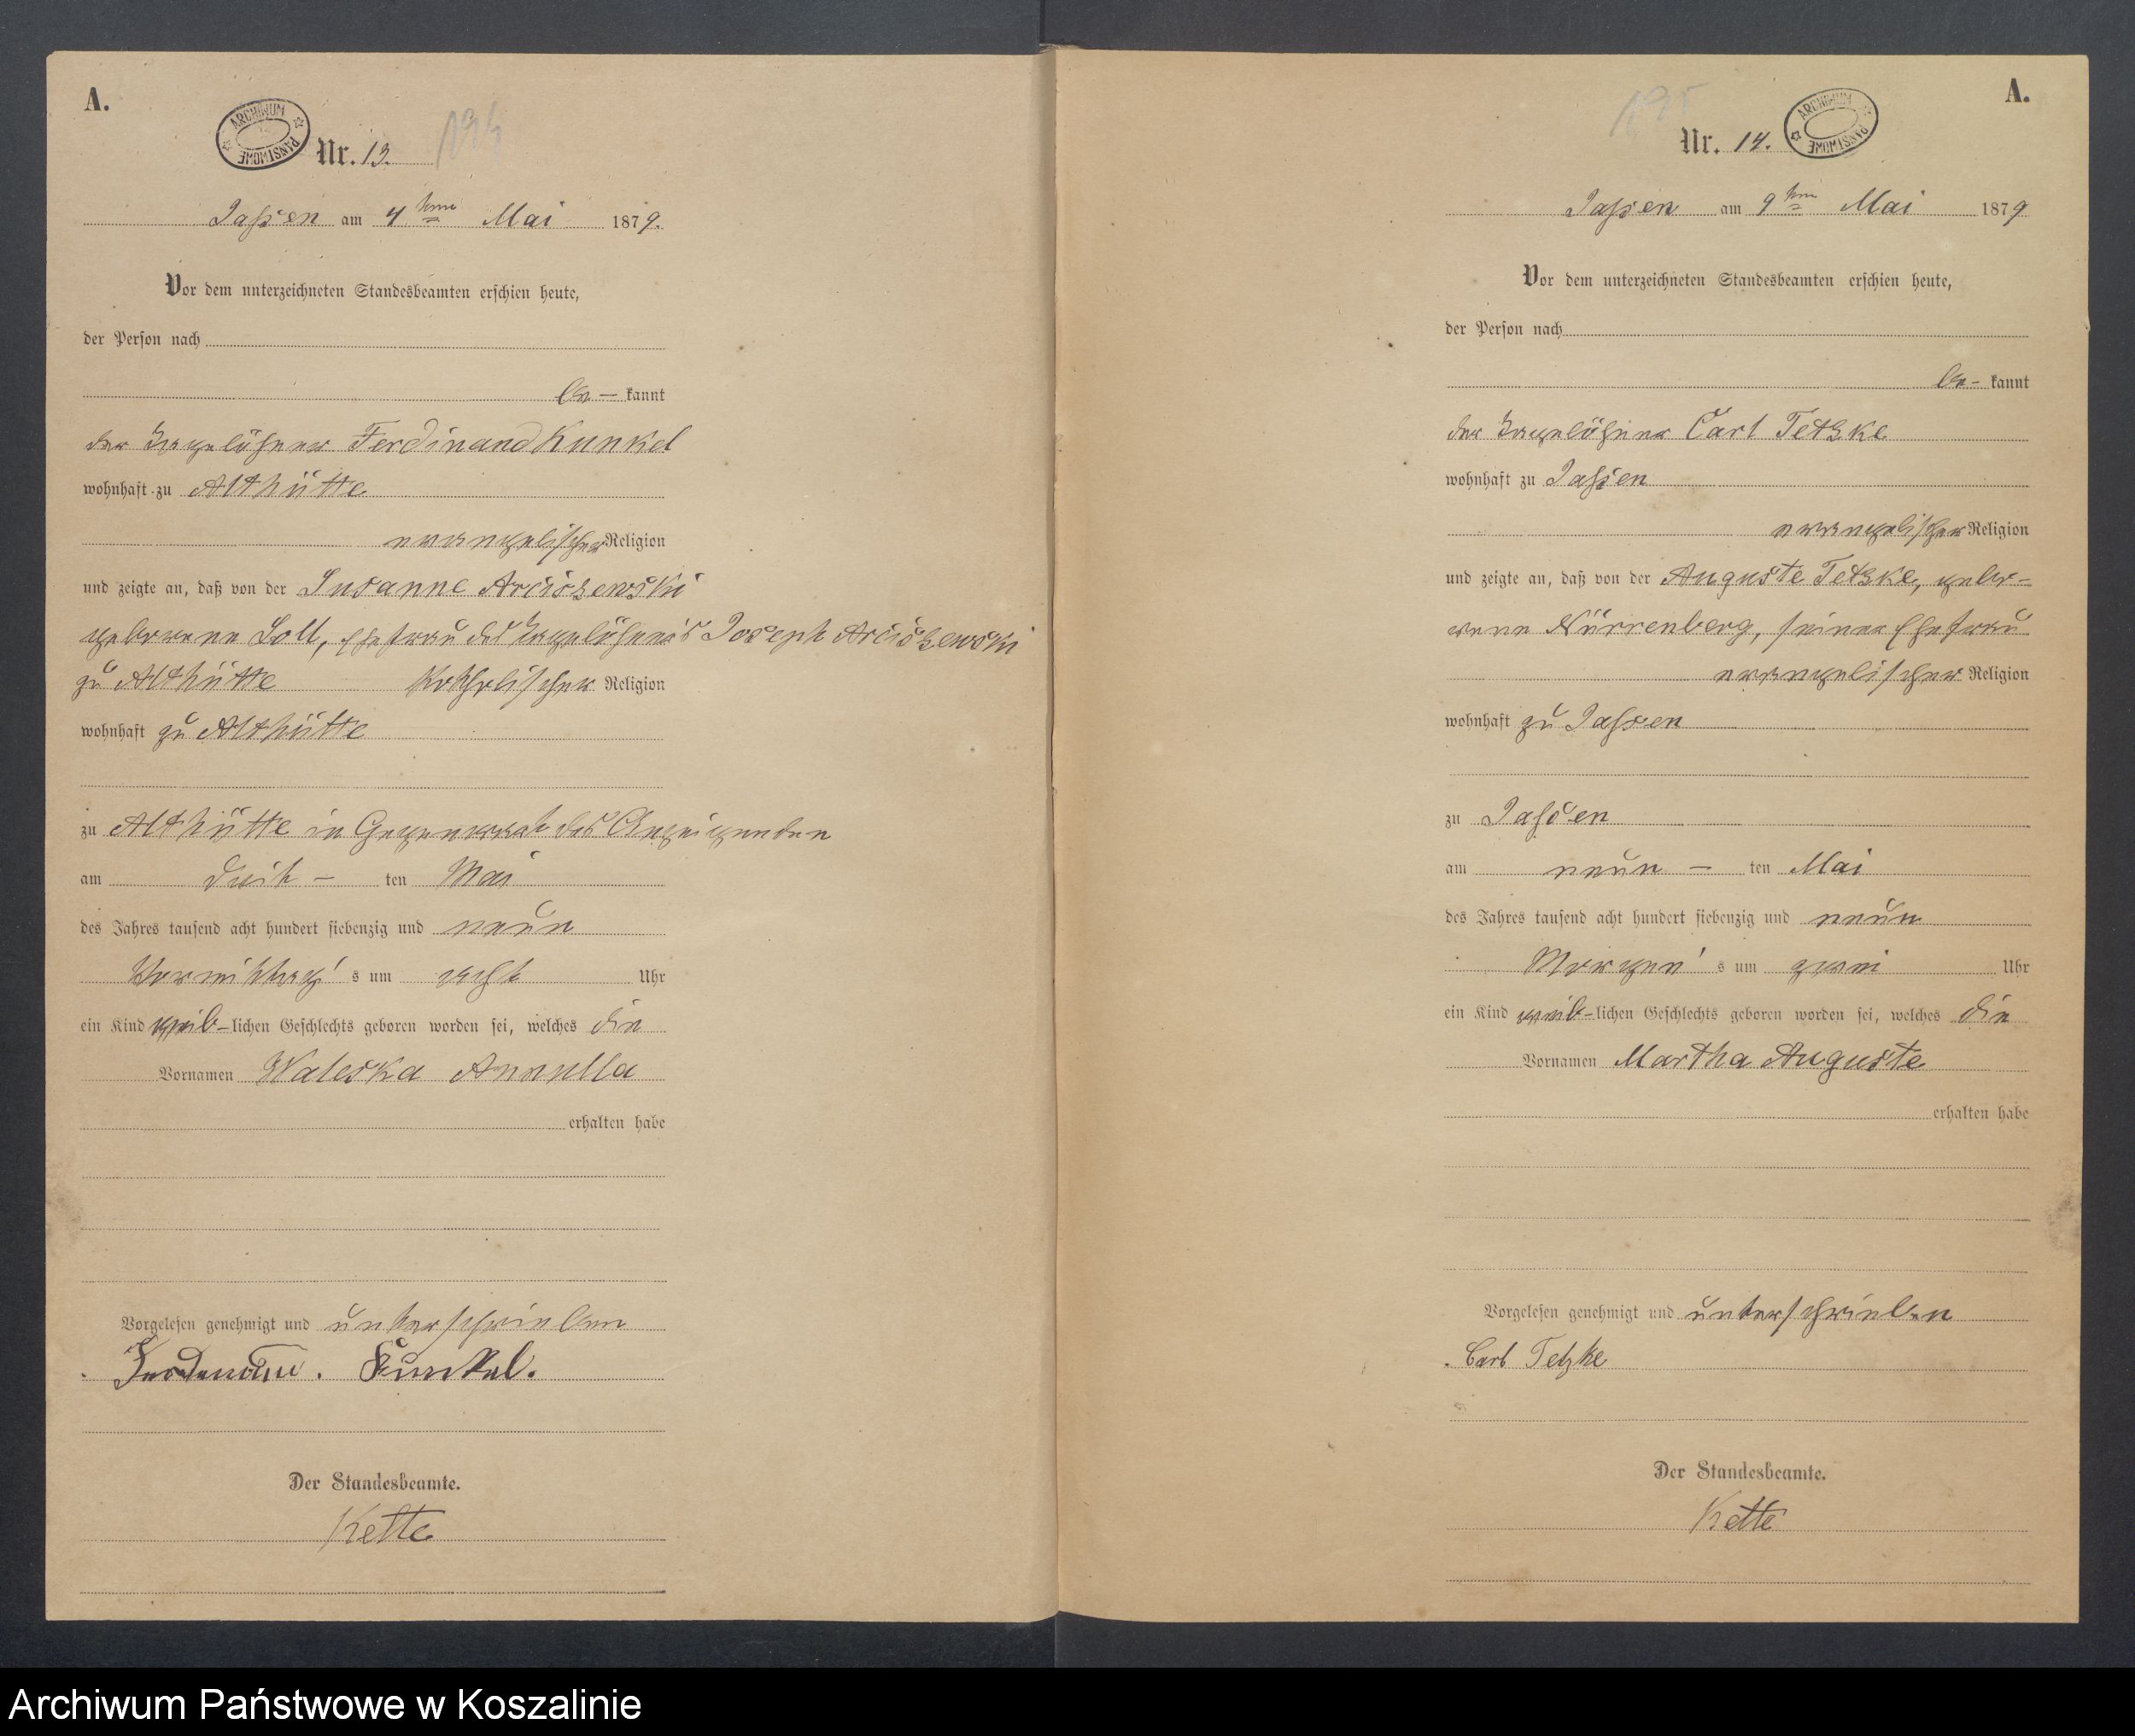 A.
ARCHIWUM PAŃSTWOWE
Nr. 13. 194
Jassen am 4ten Mai 1879.
Vor dem unterzeichneten Standesbeamten erschien heute,
der Person nach
be- kannt
der Tagelöhner Ferdinand Kunkel
wohnhaft zu Althütte
evangelischer Religion
und zeigte an, daß von der Susanne Arciszewski
geborene Soll, Ehefrau des Tagelöhners Joseph Arciszewski
zu Althütte katholischer Religion
wohnhaft zu Althütte
zu Althütte in Gegenwart des Anzeigenden
am dritt- ten Mai
des Jahres tausend acht hundert siebenzig und neun
Vormittag s um acht Uhr
ein Kind weib-lichen Geschlechts geboren worden sei, welches die
Vornamen Waleska
erhalten habe
Vorgelesen genehmigt und unterschrieben
Ferdinand Kunkel.
Der Standesbeamte.
Kette
A.
195
ARCHIWUM PAŃSTWOWE
Nr. 14.
Jassen am 9ten Mai 1879
Vor dem unterzeichneten Standesbeamten erschien heute,
der Person nach
be- kannt
der Tagelöhner Carl Tetzke
wohnhaft zu Jassen
evangelischer Religion
und zeigte an, daß von der Auguste Tetzke, gebo-
rene Nürrenberg, seiner Ehefrau
evangelischer Religion
wohnhaft zu Jassen
zu Jassen
am neun - ten Mai
des Jahres tausend acht hundert siebenzig und neun
Morgen s um zwei Uhr
ein Kind weib-lichen Geschlechts geboren worden sei, welches die
Vornamen Martha Auguste
erhalten habe
Vorgelesen genehmigt und unterschrieben
Carl Tetzke
Der Standesbeamte.
Kette
Archiwum Państwowe w Koszalinie